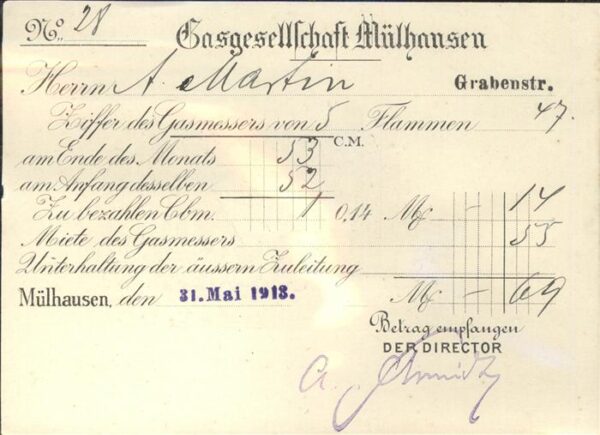 No. 28
Gasgesellschaft Mülhausen
Herrn A. Martin Grabenstr.
Ziffer des Gasmessers von 5 Flammen 47.
C.M.
am Ende des Monats 53
am Anfang desselben 52
Zu bezahlen Cbm. 1 0,14 Mk - 14
Miete des Gasmessers 55
Unterhaltung der äussern Zuleitung
Mülhausen, den 31. Mai 1913. Mk - 69
Betrag empfangen
DER DIRECTOR